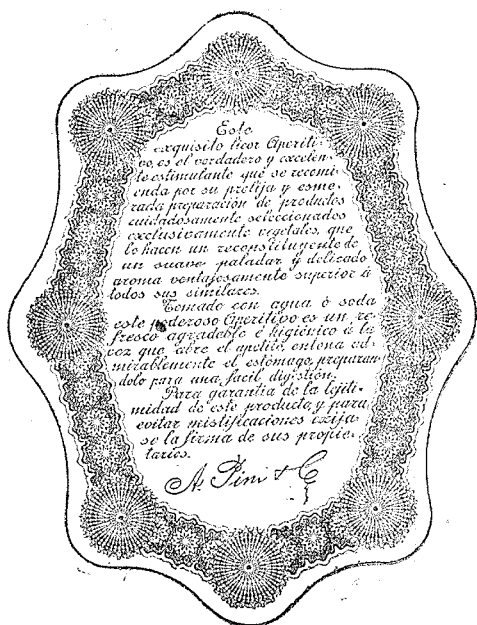 Este
exquisito licor Aperiti-
vo, es el verdadero y excelen-
te estimulante que se recomi-
enda por su prolija y esme-
rada preparación de productos
cuidadosamente seleccionados
exclusivamente vegetales, que
lo hacen un reconstituyente de
un suave paladar y delicado
aroma ventajosamente superior á
todos sus similares.
Tomado con agua ó soda
este poderoso Aperitivo es un re-
fresco agradable é higiénico á la
vez que abre el apetito, entona ad-
mirablemente el estómago preparan-
dolo para una facil digestión.
Para garantia de la lejiti-
midad de este producto, y para
evitar mistificaciones exija-
se la firma de sus propie-
tarios.
A. Pini & C